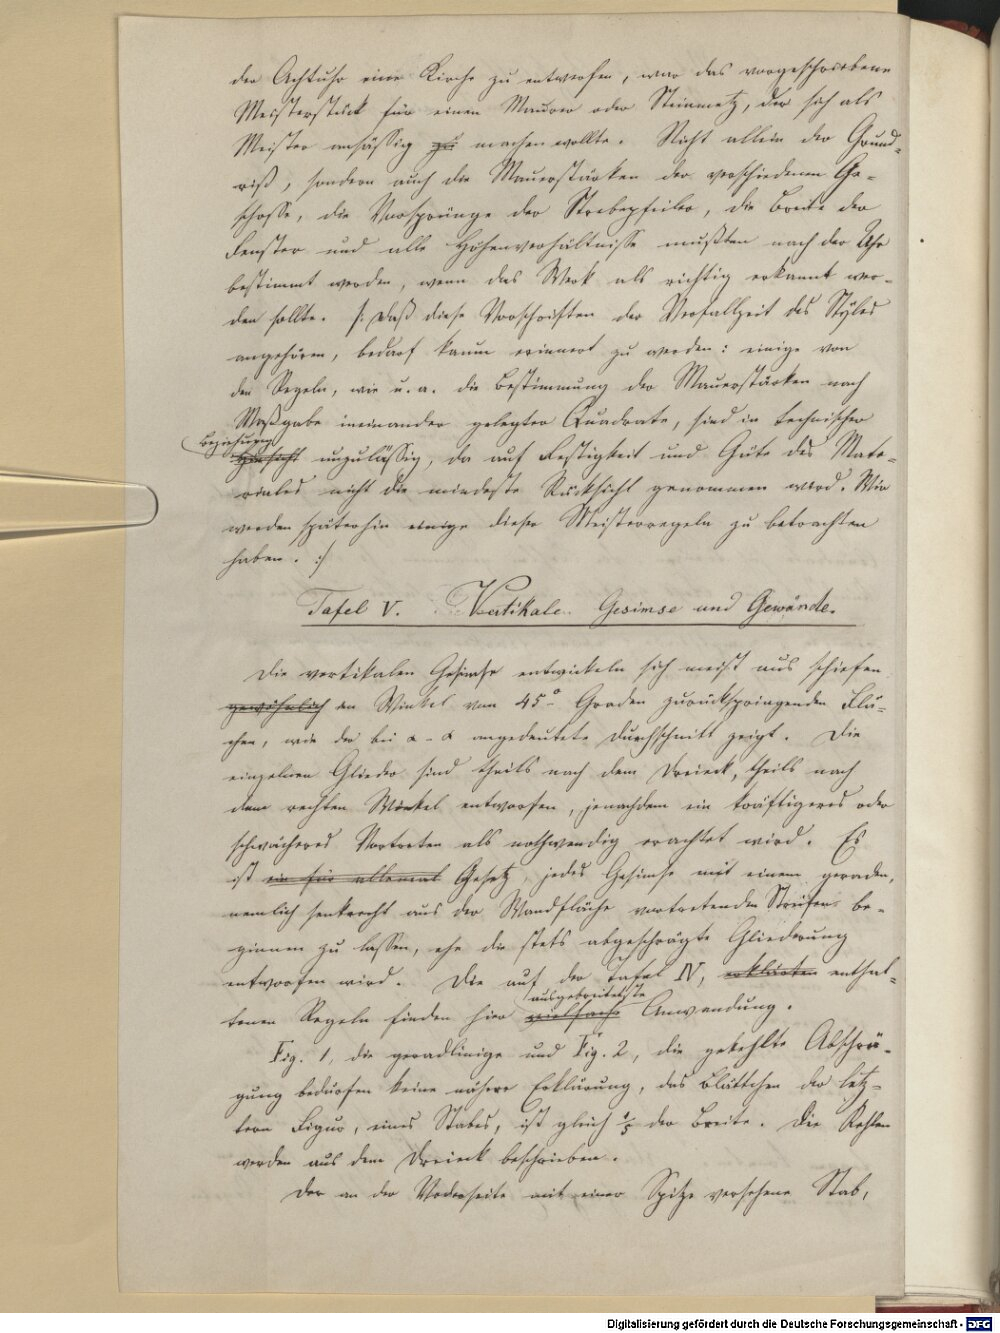 der Achtuhr eine Kirche zu entwerfen, war das vorgeschriebene
Meisterstück für einen Maurer oder Steinmetz, der sich als
Meister ansässig zu machen wollte. Nicht allein der Grund-
riß, sondern auch die Mauerstärken der verschiedenen Ge-
schosse, die Vorsprünge der Strebepfeiler, die Breite der
Fenster und alle Höhenverhältnisse mußten nach der Uhr
bestimmt werden, wenn das Werk als richtig erkannt wer-
den sollte. /: Daß diese Vorschriften der Verfallzeit des Styles
angehören, bedarf kaum erinnert zu werden: einige von
den Regeln, wie u. a. die Bestimmung der Mauerstärken nach
Maßgabe ineinander gelegter Quadrate, sind in technischer
Beziehung
Hinsicht unzulässig, da auf Festigkeit und Güte des Mate-
riales nicht die mindeste Rücksicht genommen wird. Wir
werden späterhin einige dieser Meisterregeln zu betrachten
haben. :/
Tafel V. Vertikale Gesimse und Gewände.
Die vertikalen Gesimse entwickeln sich meist aus schiefen
gewöhnlich im Winkel von 45° Graden zurückspringenden Flä-
chen, wie der bei α - α angedeutete Durchschnitt zeigt. Die
einzelnen Glieder sind theils nach dem Dreieck, theils nach
dem rechten Winkel entworfen, jenachdem ein kräftigeres oder
schwächeres Vortreten als nothwendig erachtet wird. Es
ist ein für allemal Gesetz, jedes Gesimse mit einem geraden,
nemlich senkrecht aus der Wandfläche vortretenden Streifen be-
ginnen zu lassen, ehe die stets abgeschrägte Gliederung
entworfen wird. Die auf der Tafel IV, erklärten enthal-
ausgebreitetste
tenen Regeln finden hier vielfache Anwendung.
Fig. 1, die geradlinige und Fig. 2, die gekehlte Abschrä-
gung bedürfen keine nähere Erklärung, das Blättchen der letz-
tern Figur, eines Stabes, ist gleich 1/5 der Breite. Die Kehlen
werden aus dem Dreieck beschrieben.
Der an der Vorderseite mit einer Spitze versehene Stab,
Digitalisierung gefördert durch die Deutsche Forschungsgemeinschaft - DFG